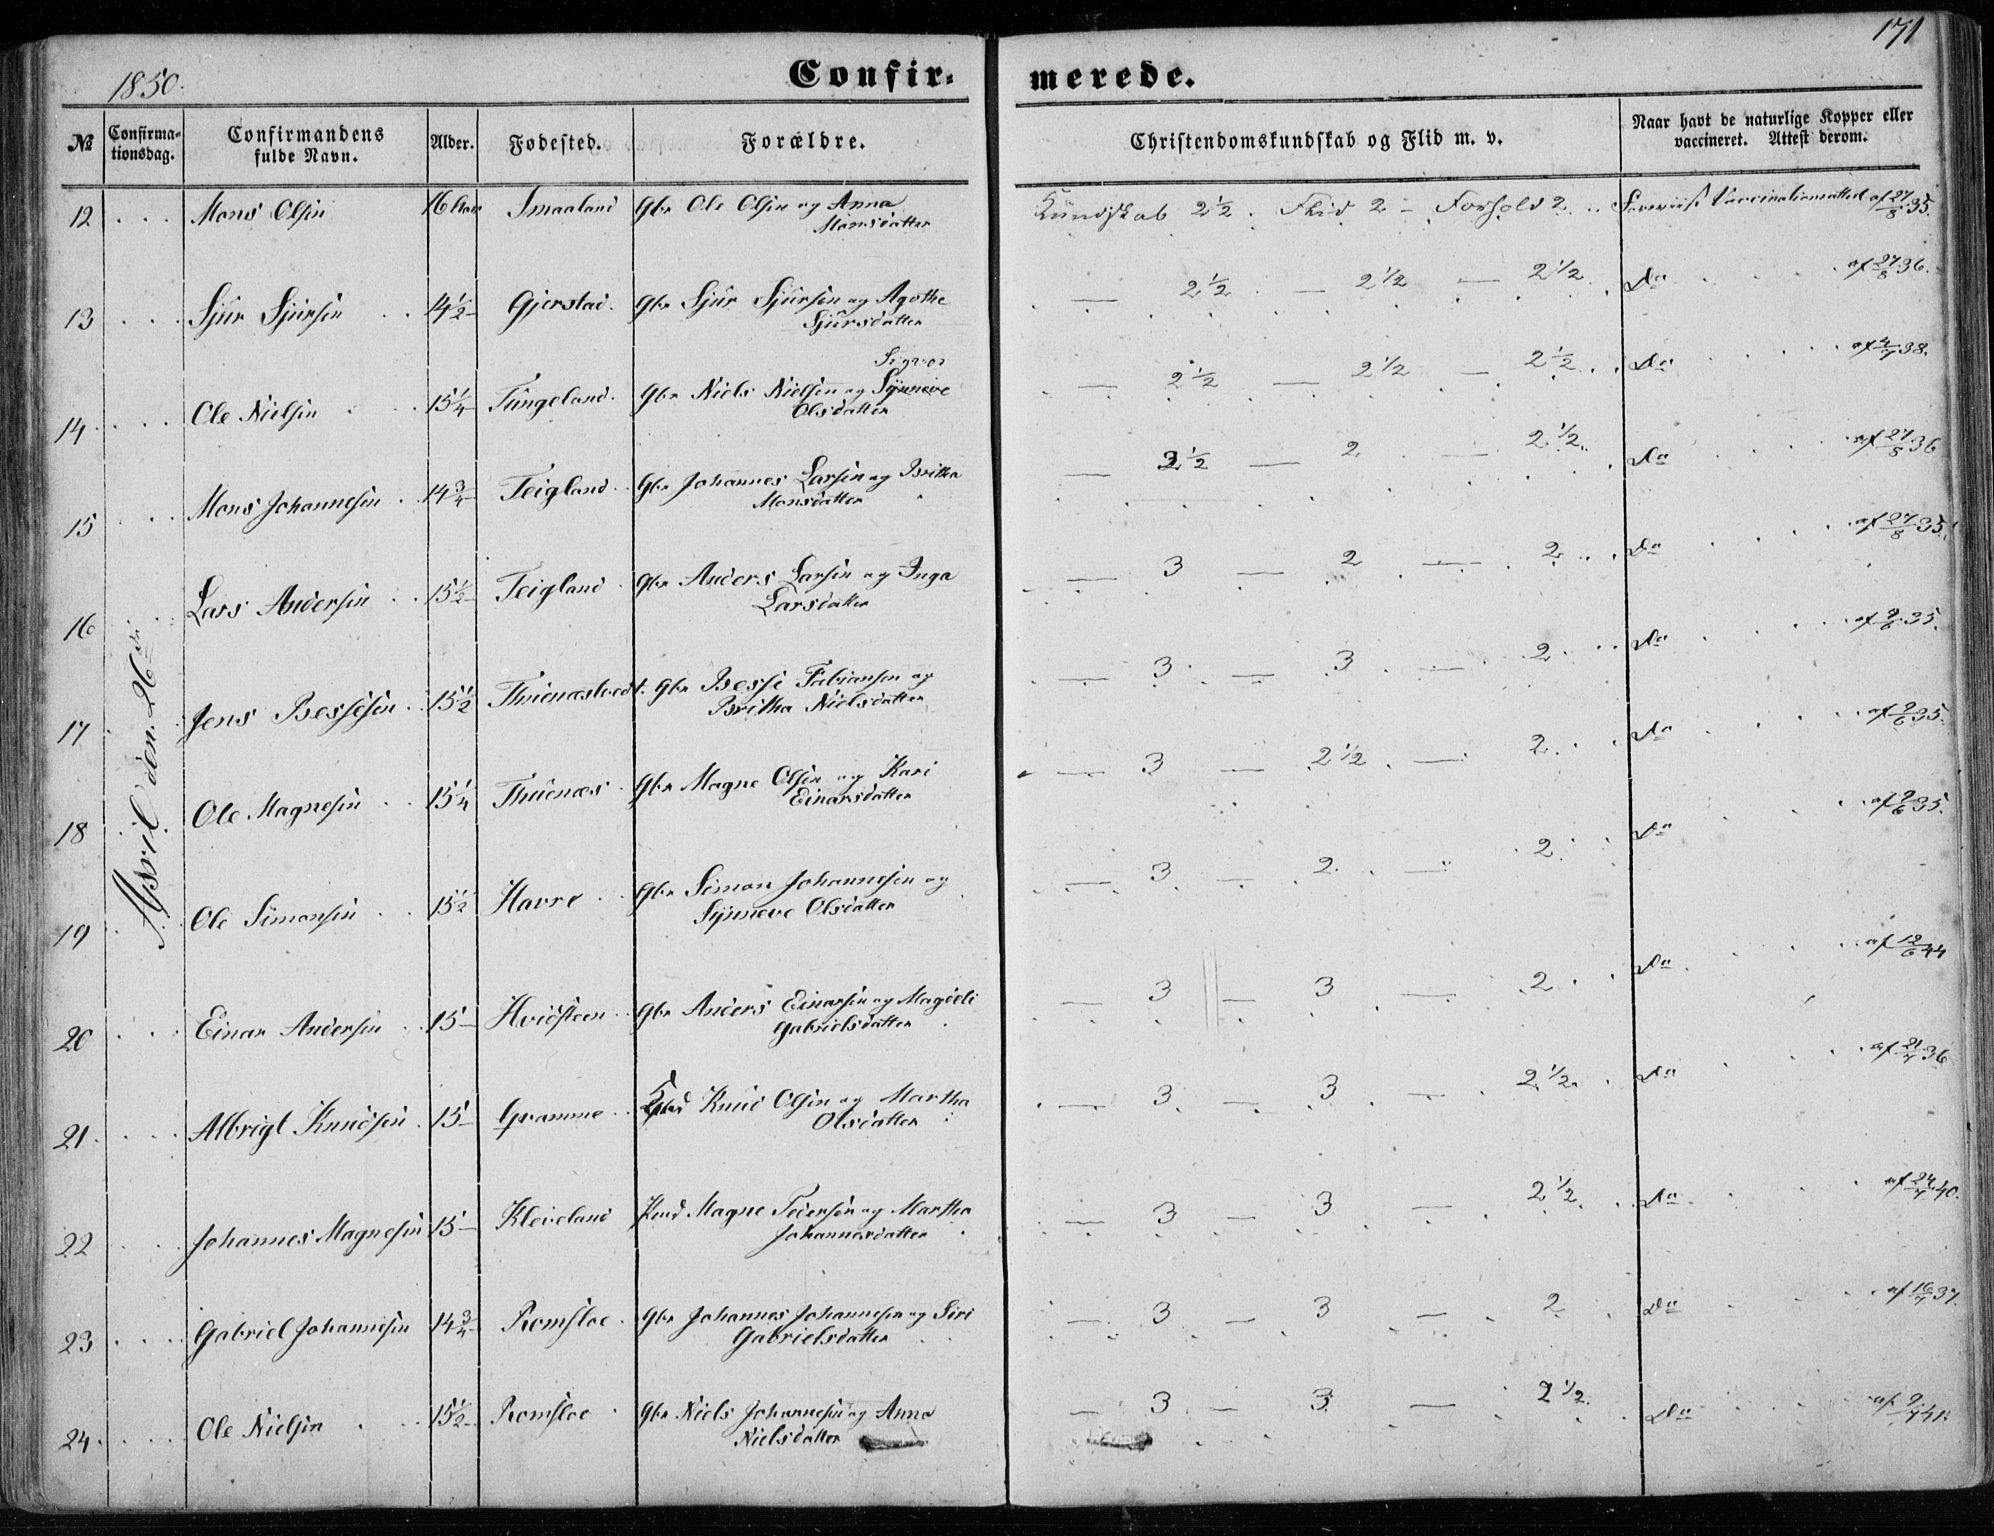 171
1850.
Confir= merede.
№ Confirma=tionsdag. Confirmandens fulde Navn. Alder. Fødested. Forældre. Christendomskundskab og Flid m. v. Naar havt de naturlige Kopper eller vaccineret. Attest derom.
April den 26de
12 Mons Olsen 16 Smaaland Gbr Ole Olsen og Anna Monsdatter Kundskab 2½. Flid 2 – Forhold 2 Vaccinationsattest af 27/8 35.
13 Sjur Sjursen 14½ Gjerstad. Gbr Sjur Sjursen og Agathe Sjursdatter — 2½ — 2½ — 2½ Do af 27/8 36.
14 Ole Nielsen 15¼ Tungeland. Gbr Niels Nielsen og Synneve Olsdatter — 2½ — 2½ — 2½ Do af 4/7 38.
15 Mons Johannesen 14¾ Teigland Gbr Johannes Larsen og Britha Monsdatter — 2½ — 2 — 2½ Do af 27/8 36
16 Lars Andersen 15½ Teigland Gbr Anders Larsen og Inga Larsdatter — 3 — 2 — 2 Do af 27/8 35.
17 Jens Bessesen 15½ Thuenæstvedt. Gbr Besse Fabiansen og Britha Nielsdatter — 3 — 3 — 2 Do af 9/6 35.
18 Ole Magnesen 15¼ Thuenæs Gbr Magne Olsen og Kari Einarsdatter — 3 — 2½ — 2 Do af 9/6 35.
19 Ole Simonsen 15½ Havre Gbr Simon Johannesen og Synneve Olsdatter — 3 — 2 — 2 Do af 9/6 35.
20 Einar Andersen 15 Hvidsteen Gbr Anders Einarsen og Magdeli Gabrielsdatter — 3 — 3 — 2 Do af 12/6 44
21 Albrigt Knudsen 15 Gramme Knud Olsen og Martha Olsdatter — 3 — 3 — 2½ Do af 21/7 36
22 Johannes Magnesen 15 Kleveland Magne Pedersen og Martha Johannesdatter — 3 — 3 — 2½ Do af 24/7 40.
23 Gabriel Johannesen 14¾ Romsloe Gbr Johannes Johannesen og Siri Gabrielsdatter — 3 — 3 — 2 Do af 16/7 37.
24 Ole Nielsen 15½ Romsloe Gbr Niels Johannesen og Anna Nielsdatter — 3 — 3 — 2½ Do af 9/7 41.